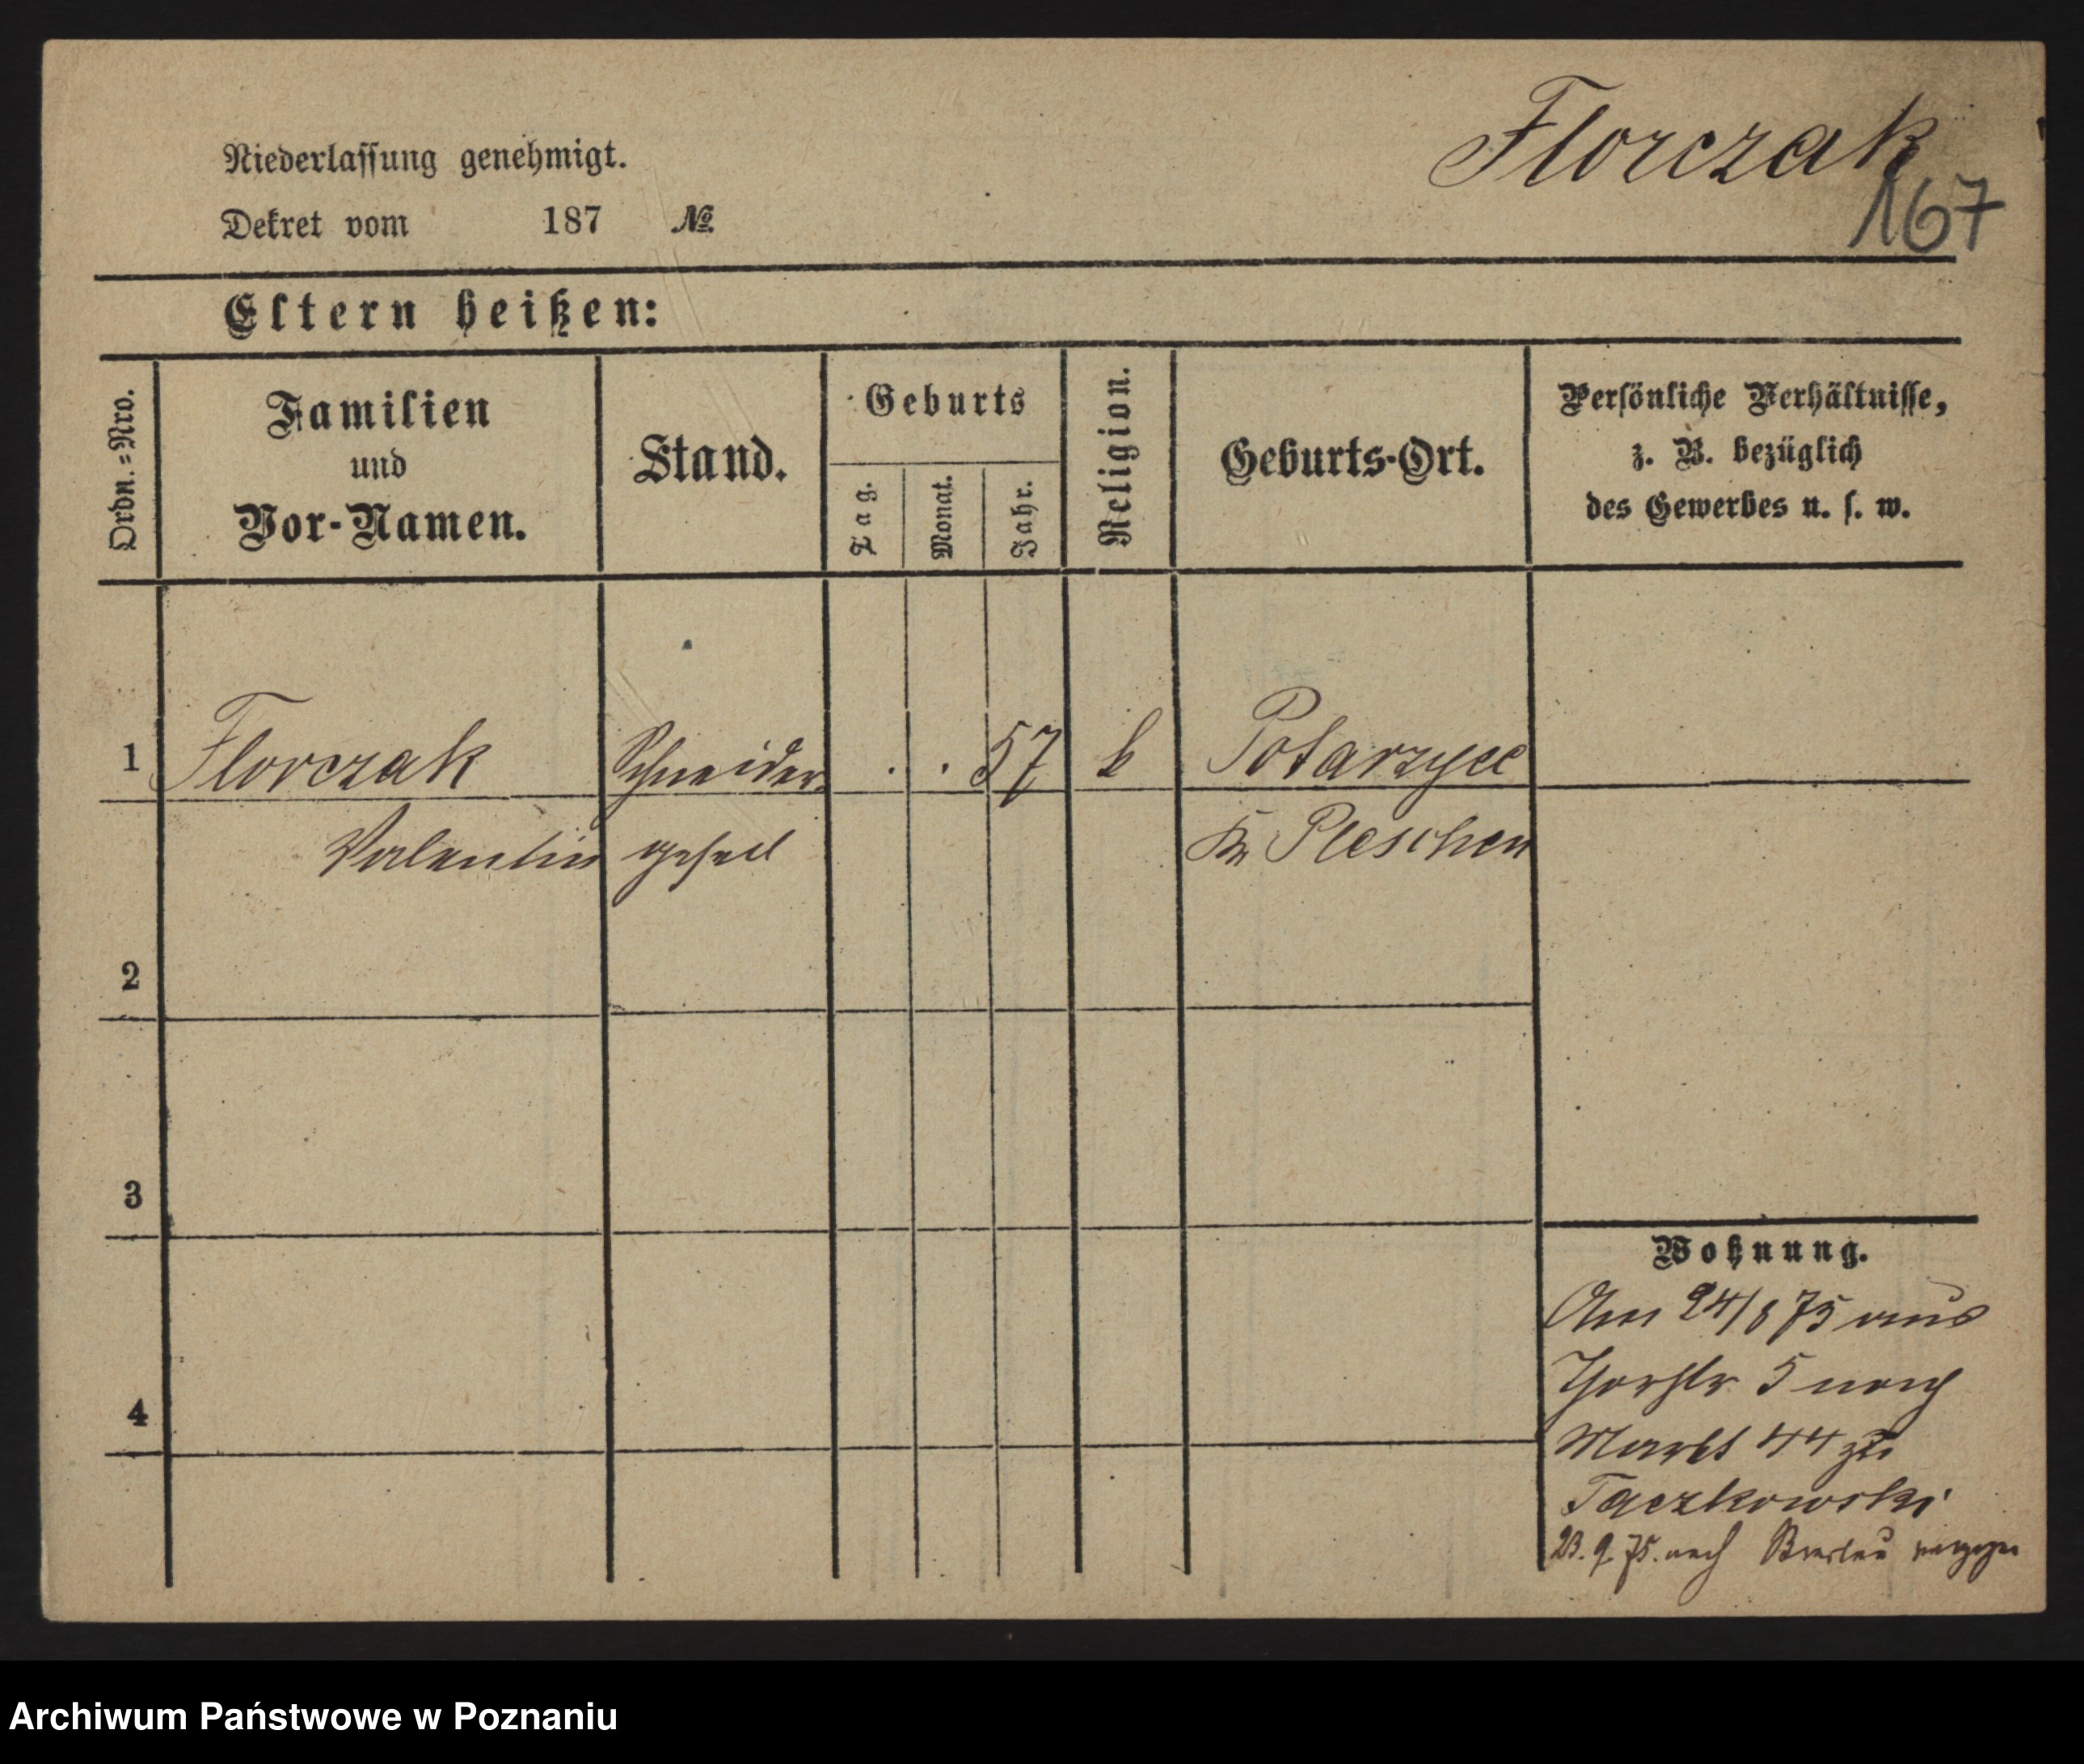 Florczak
167
Niederlassung genehmigt.
Dekret vom 187 №
Eltern heißen:
Ordn.=Nro.
Familien
und
Vor-Namen.
Stand.
Geburts
Tag.
Monat.
Jahr.
Religion.
Geburts-Ort.
Persönliche Verhältnisse,
z. B. bezüglich
des Gewerbes u. s. w.
1 Florczak Schneider . . 57 k Potarzyce
Valentin gesell Kr Pleschen
2
3
4
Wohnung.
Am 24/8 75 aus
Thorstr 5 nach
Markt 44 zu
Taczkowski
23. 9. 75. nach Breslau verzogen
Archiwum Państwowe w Poznaniu